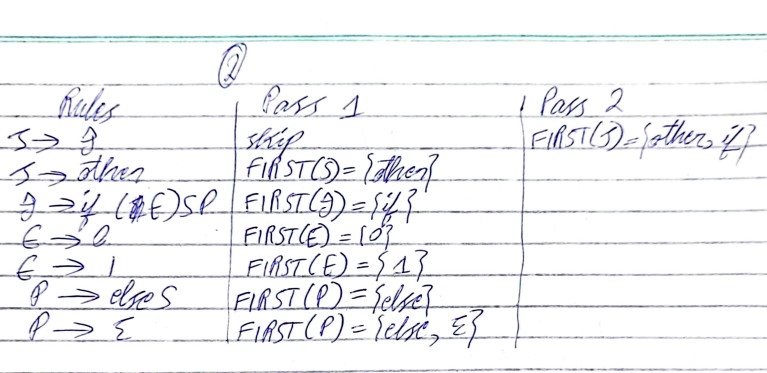 ②
Rules Pass 1 Pass 2
S → I skip FIRST(S) = {other, if}
S → other FIRST(S) = {other}
I → if (E) S P FIRST(I) = {if}
E → 0 FIRST(E) = {0}
E → 1 FIRST(E) = {1}
P → else S FIRST(P) = {else}
P → Σ FIRST(P) = {else, Σ}